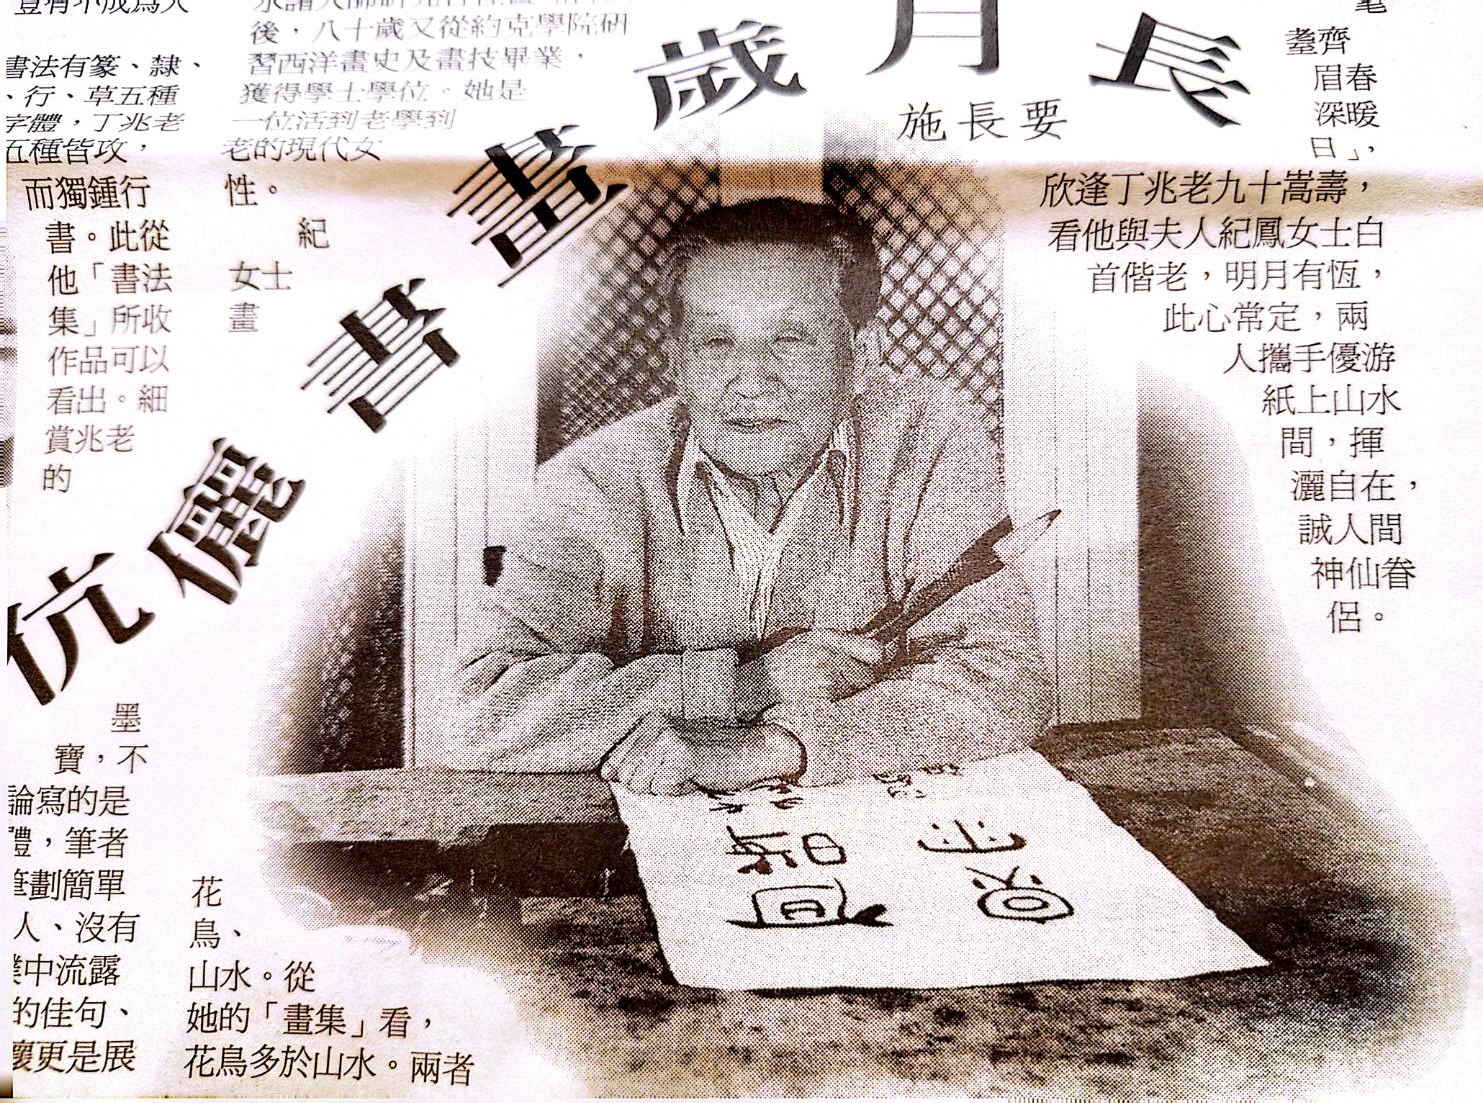 伉儷書畫歲月長
施長要
耋齊
眉春
深暖
日」，
欣逢丁兆老九十嵩壽，
看他與夫人紀鳳女士白
首偕老，明月有恆，
此心常定，兩
人攜手優游
紙上山水
間，揮
灑自在，
誠人間
神仙眷
侶。
後，八十歲又從約克學院研
習西洋畫史及畫技畢業，
獲得學士學位。她是
一位活到老學到
老的現代女
性。
紀
女士
畫
花
鳥、
山水。從
她的「畫集」看，
花鳥多於山水。兩者
豈有不成為人
書法有篆、隸、
、行、草五種
字體，丁兆老
五種皆攻，
而獨鍾行
書。此從
他「書法
集」所收
作品可以
看出。細
賞兆老
的
墨
寶，不
論寫的是
體，筆者
筆劃簡單
人、沒有
中流露
的佳句、
更是展